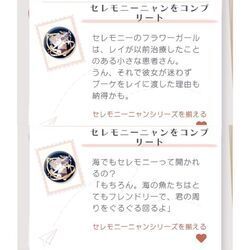 セレモニーニャンをコンプ
リート
セレモニーのフラワーガール
は、レイが以前治療したこと
のある小さな患者さん。
うん、それで彼女が迷わず
ブーケをレイに渡した理由も
納得かも。
セレモニーニャンシリーズを揃える
セレモニーニャンをコンプ
リート
海でもセレモニーって開かれ
るの？
「もちろん。海の魚たちはと
てもフレンドリーで、君の周
りをぐるぐる回るよ」
セレモニーニャンシリーズを揃える